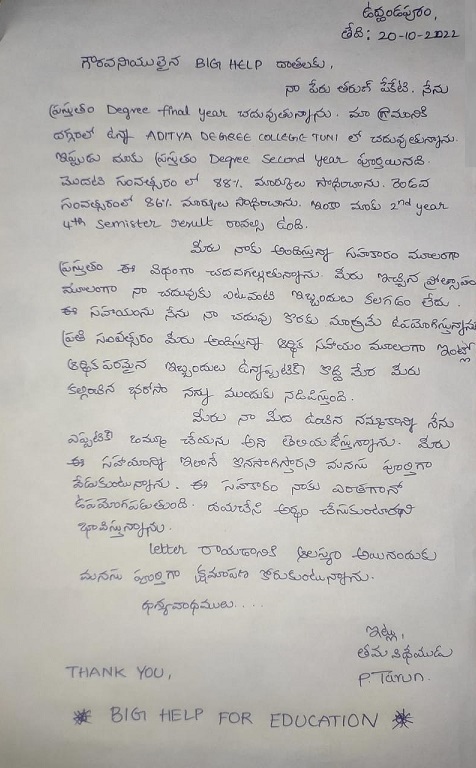 ఉద్దండపురం,
తేది: 20-10-2022
గౌరవనీయులైన BIG HELP దాతలకు,
నా పేరు తరుణ్ పేకేటి. నేను
ప్రస్తుతం Degree final year చదువుతున్నాను. మా గ్రామానికి
దగ్గరలో ఉన్న ADITYA DEGREE COLLEGE TUNI లో చదువుతున్నాను.
ఇప్పుడు మాకు ప్రస్తుతం Degree second year పూర్తయినది.
మొదటి సంవత్సరం లో 88% మార్కులు సాధించాను. రెండవ
సంవత్సరంలో 86% మార్కులు సాధించాను. ఇంకా మాకు 2nd year
4th semister result రావల్సి ఉంది.
మీరు నాకు అందిస్తున్న సహకారం మూలంగా
ప్రస్తుతం ఈ విధంగా చదవగల్గుతున్నాను. మీరు ఇచ్చిన ప్రోత్సాహం
మూలంగా నా చదువుకు ఎటువంటి ఇబ్బందులు కలగడం లేదు.
ఈ సహాయంను నేను నా చదువు కొరకు మాత్రమే ఉపయోగిస్తున్నాను
ప్రతి సంవత్సరం మీరు అందిస్తున్న ఆర్థిక సహాయం మూలంగా ఇంట్లో
ఆర్థిక పరమైన ఇబ్బందులు ఉన్నప్పటికీ కొద్ది మేర మీరు
కల్పించిన భరోసా నన్ను ముందుకు నడిపిస్తుంది.
మీరు నా మీద ఉంచిన నమ్మకాన్ని నేను
ఎప్పటికి వమ్ము చేయను అని తెలియచేస్తున్నాను. మీరు
ఈ సహాయాన్ని ఇలానే కొనసాగిస్తారని మనసు పూర్తిగా
వేడుకుంటున్నాను. ఈ సహకారం నాకు ఎంతగానో
ఉపయోగపడుతుంది. దయచేసి అర్థం చేసుకుంటారని
భావిస్తున్నాను.
letter రాయడానికి ఆలస్యం అయినందుకు
మనసు పూర్తిగా క్షమాపణ కోరుకుంటున్నాను.
ధన్యవాదములు....
ఇట్లు,
తమ విధేయుడు
P. Tarun.
THANK YOU,
BIG HELP FOR EDUCATION